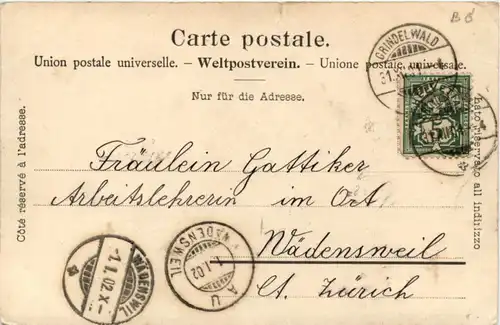 B B
Carte postale.
Union postale universelle. – Weltpostverein. – Unione postale universale.
Nur für die Adresse.
Côté réservé à l'adresse.
Lato riservato all indirizzo
GRINDELWALD
31.
Fräulein Gattiker
Arbeitslehrerin im Ort
Wädensweil
Ct. Zürich
WÄDENSWIL
-1.I.02.X-
WÄDENSWEIL
I.02
AU